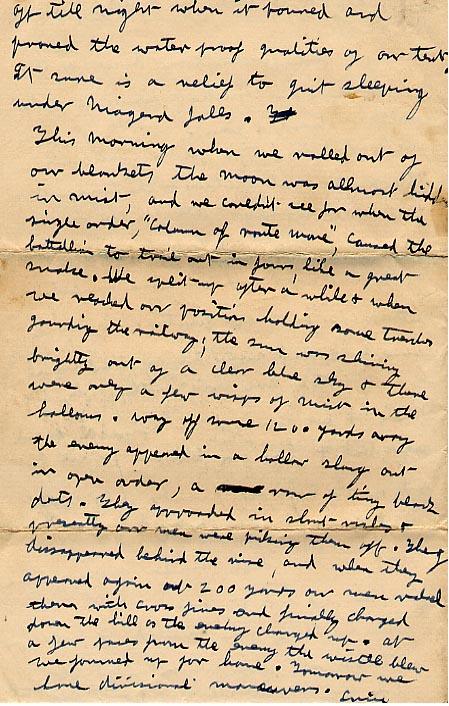 off till night when it poured and
proved the water proof qualities of our tent.
It sure is a relief to quit sleeping
under Niagera falls.
This morning when we rolled out of
our blankets, the moon was allmost hidd
in mist, and we couldn't see far when the
single order, "Column of route move" caused the
battalin to trail out in fours, like a great
snake. We split up after a while & when
we reached our position holding some trenches
guarding the railway, the sun was shining
brightly out of a clear blue sky & there
were only a few wisps of mist in the
hollows. Way off some 1200 yards away
the enemy appeared in a hollow strung out
in open order, a row of tiny black
dots. They approached in short rushes &
presently our men were picking them off. They
dissappeared behind the rise, and when they
appeared again at 200 yards our men raked
them with cross fires and finally charged
down the hill as the enemy charged up. At
a few paces from the enemy the wistle blew
we formed up for home. Tomorrow we
have divisional manouvers.